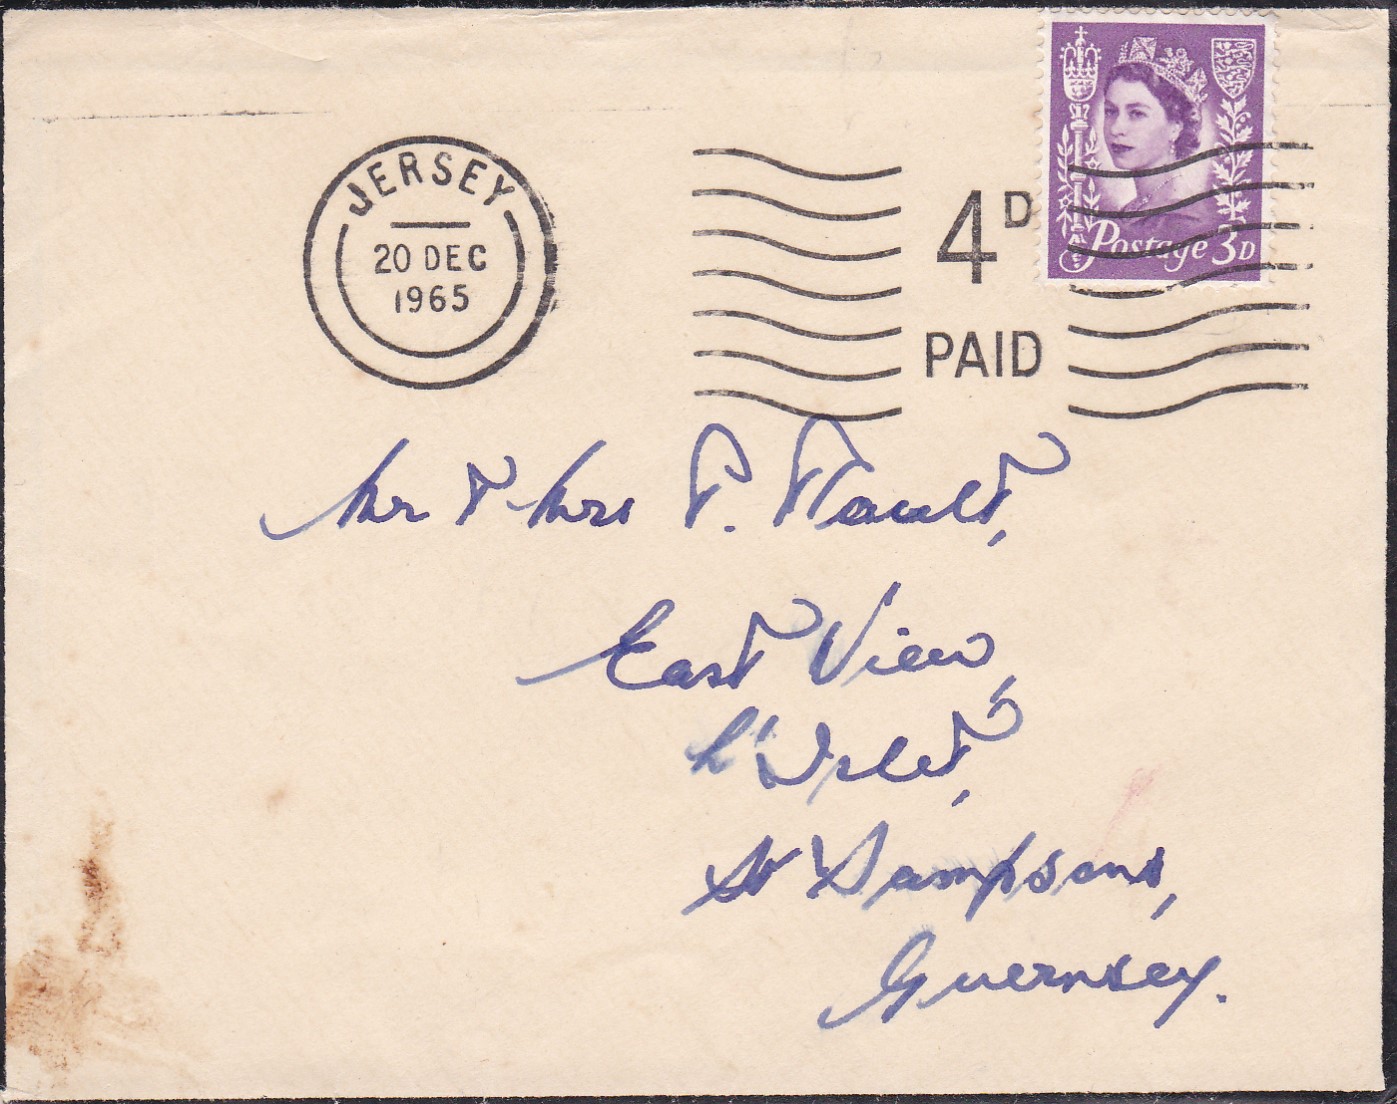 JERSEY
20 DEC
1965
4D
PAID
Postage 3D
Mr & Mrs P.
East View,
L'Islet,
St Sampsons,
Guernsey.